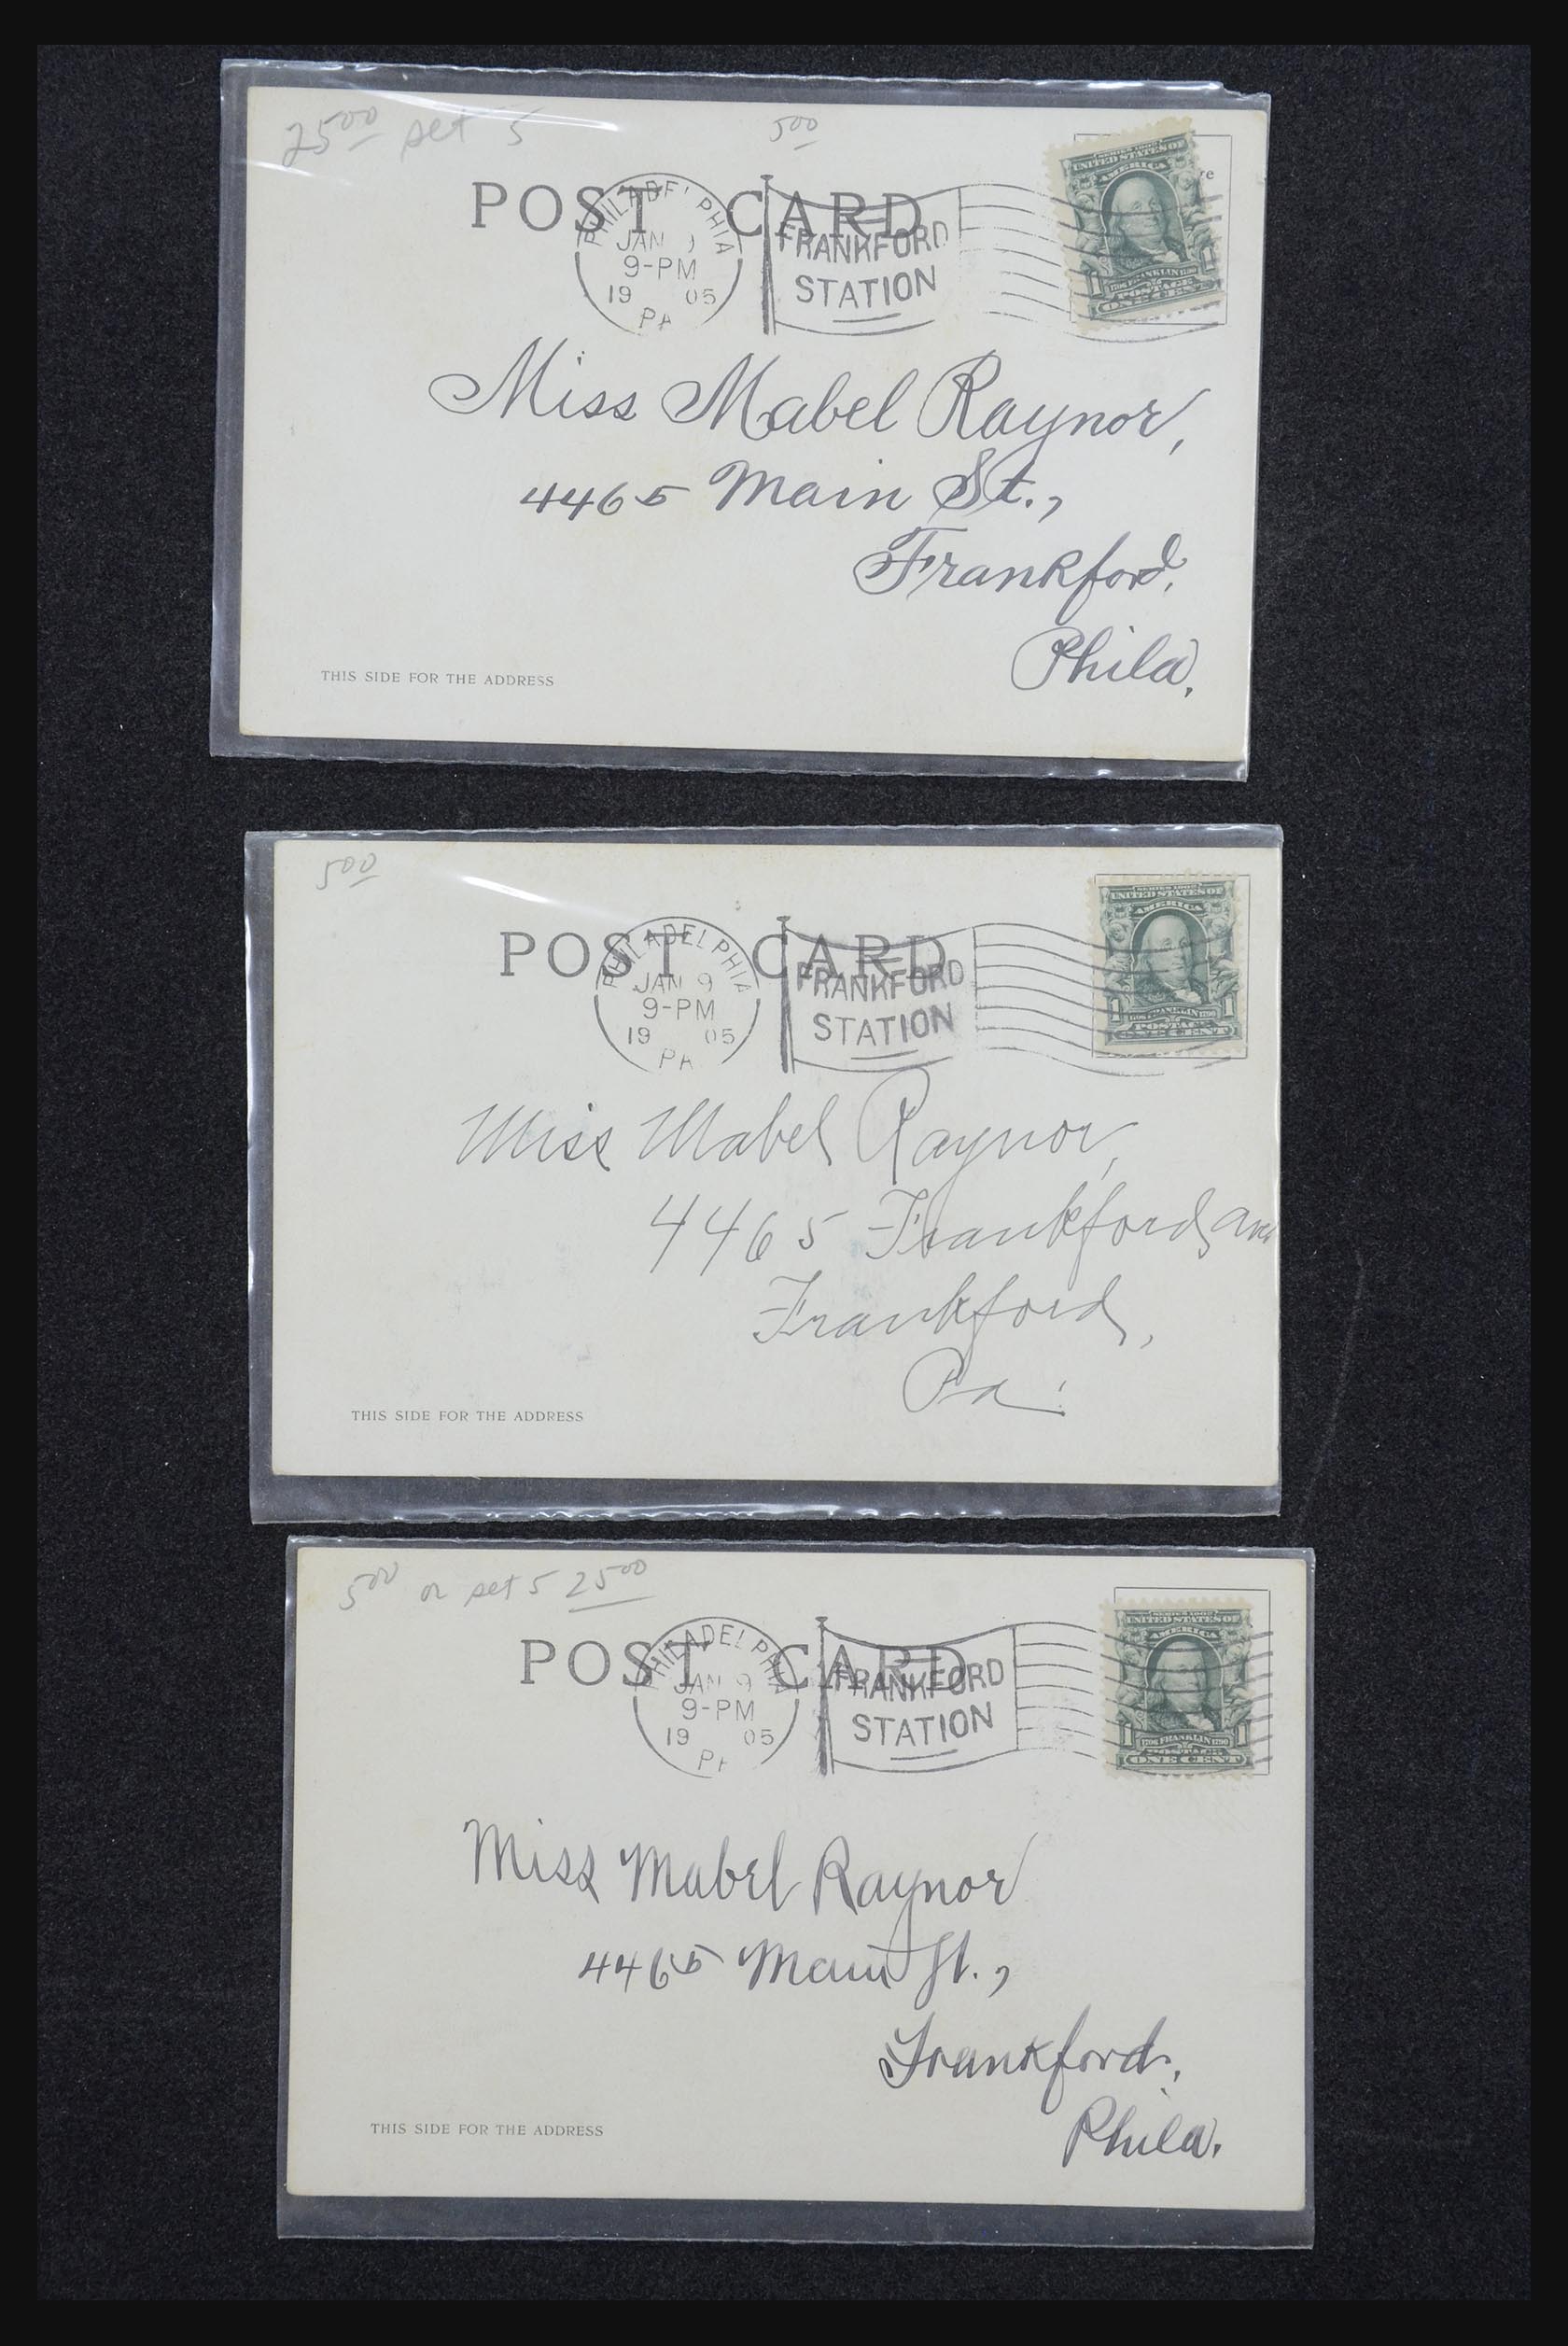 25⁰⁰ set 5 5⁰⁰
POST CARD
PHILADELPHIA
JAN
9-PM
19 05
PA
FRANKFORD
STATION
SERIES 1902
UNITED STATES OF
AMERICA
1 1706 FRANKLIN 1790 1
POSTAGE
ONE CENT
re
Miss Mabel Raynor,
4465 Main St.,
Frankford,
Phila,
THIS SIDE FOR THE ADDRESS
5⁰⁰
POST CARD
PHILADELPHIA
JAN 9
9-PM
19 05
PA
FRANKFORD
STATION
SERIES 1902
UNITED STATES OF
AMERICA
1 1706 FRANKLIN 1790 1
POSTAGE
ONE CENT
Miss Mabel Raynor,
4465 Frankford ave
Frankford,
Pa.
THIS SIDE FOR THE ADDRESS
5⁰⁰ or set 5 25⁰⁰
POST CARD
PHILADELPHIA
JAN 9
9-PM
19 05
PA
FRANKFORD
STATION
SERIES 1902
UNITED STATES OF
AMERICA
1 1706 FRANKLIN 1790 1
POSTAGE
ONE CENT
Miss Mabel Raynor
4465 Main St.,
Frankford,
Phila.
THIS SIDE FOR THE ADDRESS